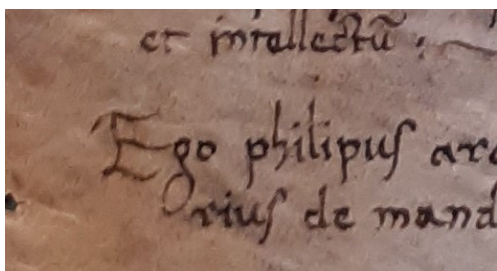 et intellectū :
Ego philipus arc
rius de mand